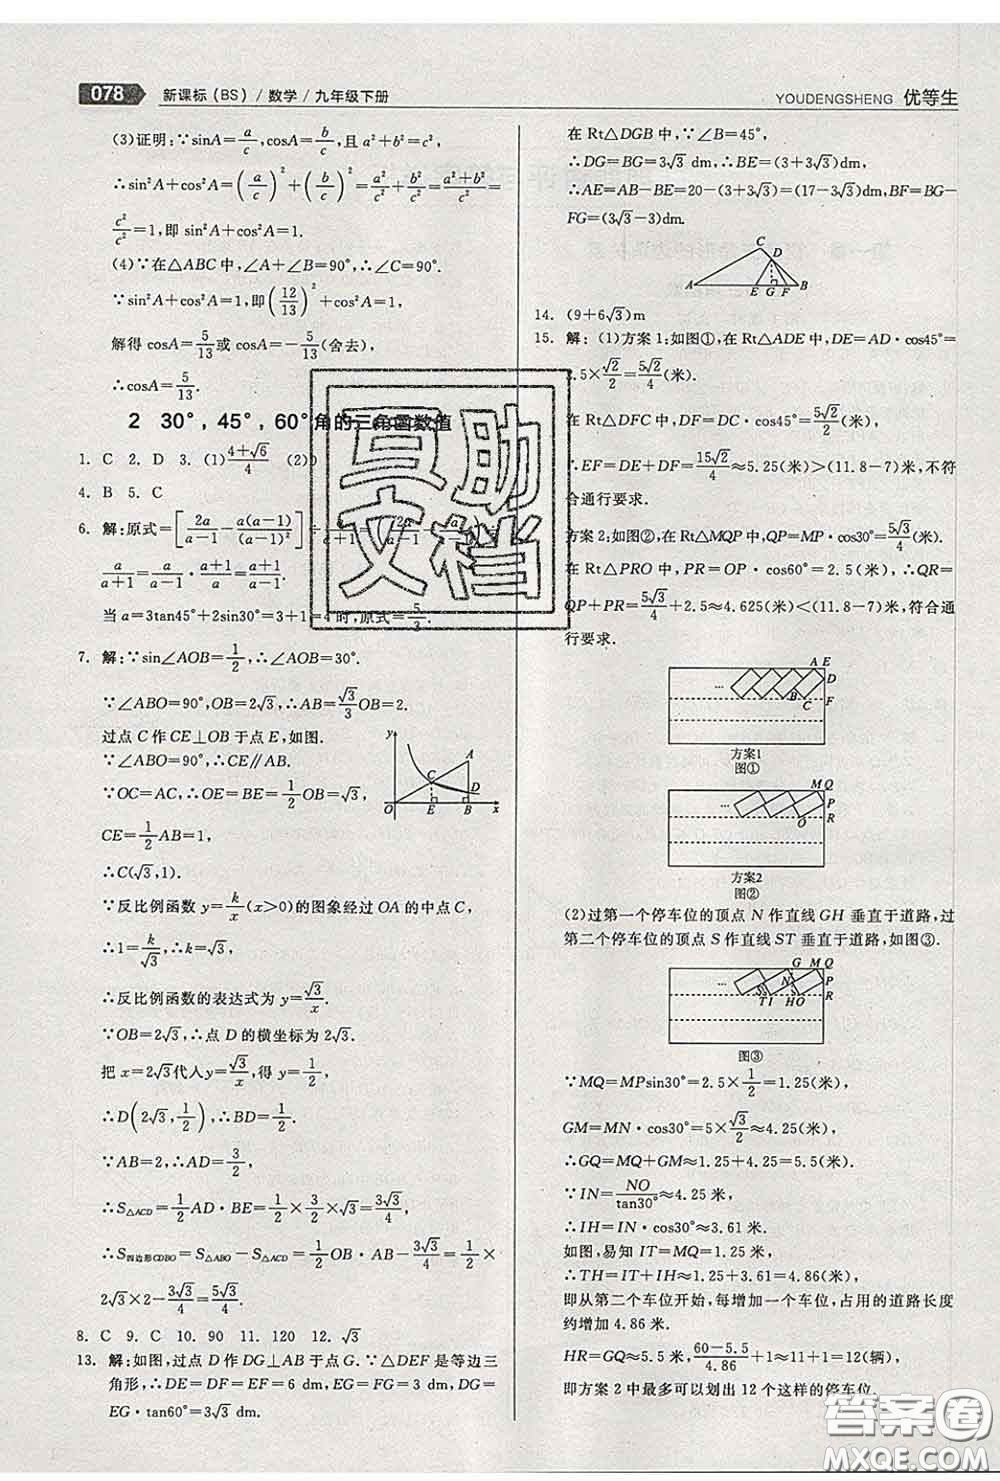 078 新课标(BS)/数学/九年级下册
YOUDENGSHENG 优等生
(3)证明:∵sinA=a/c,cosA=b/c,且 a²+b²=c²,
∴sin²A+cos²A=(a/c)²+(b/c)²=a²/c²+b²/c²=(a²+b²)/c²=
c²/c²=1,即 sin²A+cos²A=1.
(4)∵在△ABC中,∠A+∠B=90°,∴∠C=90°.
∵sin²A+cos²A=1,即(12/13)²+cos²A=1,
解得 cosA=5/13或 cosA=-5/13(舍去),
∴cosA=5/13.
2 30°,45°,60°角的三角函数值
1. C 2. D 3. (1)(4+√6)/4 (2)0
4. B 5. C
6. 解:原式=[2a/(a-1)-a(a-1)/(a-1)²]
a/(a+1)=a/(a-1)·(a+1)/a=(a+1)/(a-1).
当 a=3tan45°+2sin30°=3+1=4时,原式=5/3.
7. 解:∵sin∠AOB=1/2,∴∠AOB=30°.
∵∠ABO=90°,OB=2√3,∴AB=√3/3 OB=2.
过点 C 作 CE⊥OB 于点 E,如图.
∵∠ABO=90°,∴CE∥AB.
∵OC=AC,∴OE=BE=1/2 OB=√3,
CE=1/2 AB=1,
∴C(√3,1).
∵反比例函数 y=k/x(x>0)的图象经过 OA 的中点 C,
∴1=k/√3,∴k=√3,
∴反比例函数的表达式为 y=√3/x.
∵OB=2√3,∴点 D 的横坐标为 2√3.
把 x=2√3代入 y=√3/x,得 y=1/2,
∴D(2√3,1/2),∴BD=1/2.
∵AB=2,∴AD=3/2,
∴S△ACD=1/2 AD·BE=1/2×3/2×√3=3√3/4,
∴S四边形CDBO=S△ABO-S△ACD=1/2 OB·AB-3√3/4=1/2×
2√3×2-3√3/4=5√3/4.
8. C 9. C 10. 90 11. 120 12. √3
13. 解:如图,过点 D 作 DG⊥AB 于点 G.∵△DEF 是等边三
角形,∴DE=DF=EF=6 dm,EG=FG=3 dm,DG=
EG·tan60°=3√3 dm.
y A C D O E B x
在 Rt△DGB 中,∵∠B=45°,
∴DG=BG=3√3 dm,∴BE=(3+3√3)dm,
∴AE=AB-BE=20-(3+3√3)=(17-3√3)dm,BF=BG-
FG=(3√3-3)dm.
C D A E G F B
14. (9+6√3)m
15. 解:(1)方案1:如图①,在 Rt△ADE 中,DE=AD·cos45°=
2.5×√2/2=5√2/4(米).
在 Rt△DFC 中,DF=DC·cos45°=5√2/2(米),
∴EF=DE+DF=15√2/4≈5.25(米)>(11.8-7)米,不符
合通行要求.
方案2:如图②,在 Rt△MQP 中,QP=MP·cos30°=5√3/4(米).
在 Rt△PRO 中,PR=OP·cos60°=2.5(米),∴QR=
QP+PR=5√3/4+2.5≈4.625(米)<(11.8-7)米,符合通
行要求.
A E … D B C F
方案1
图①
M Q … P O R
方案2
图②
(2)过第一个停车位的顶点 N 作直线 GH 垂直于道路,过
第二个停车位的顶点 S 作直线 ST 垂直于道路,如图③.
G M Q … S N P T I H O R
图③
∵MQ=MPsin30°=2.5×1/2=1.25(米),
GM=MN·cos30°=5×√3/2≈4.25(米).
∴GQ=MQ+GM≈1.25+4.25=5.5(米).
∵IN=NO/tan30°≈4.25(米),
∴IH=IN·cos30°≈3.61(米).
如图,易知 IT=MQ=1.25(米),
∴TH=IT+IH≈1.25+3.61=4.86(米),
即从第二个车位开始,每增加一个车位,占用的道路长度
约增加 4.86 米.
HR=GQ≈5.5(米),(60-5.5)/4.86+1≈11+1=12(辆),
即方案2中最多可以划出12个这样的停车位.
互助
文档
答案圈
MXQE.COM